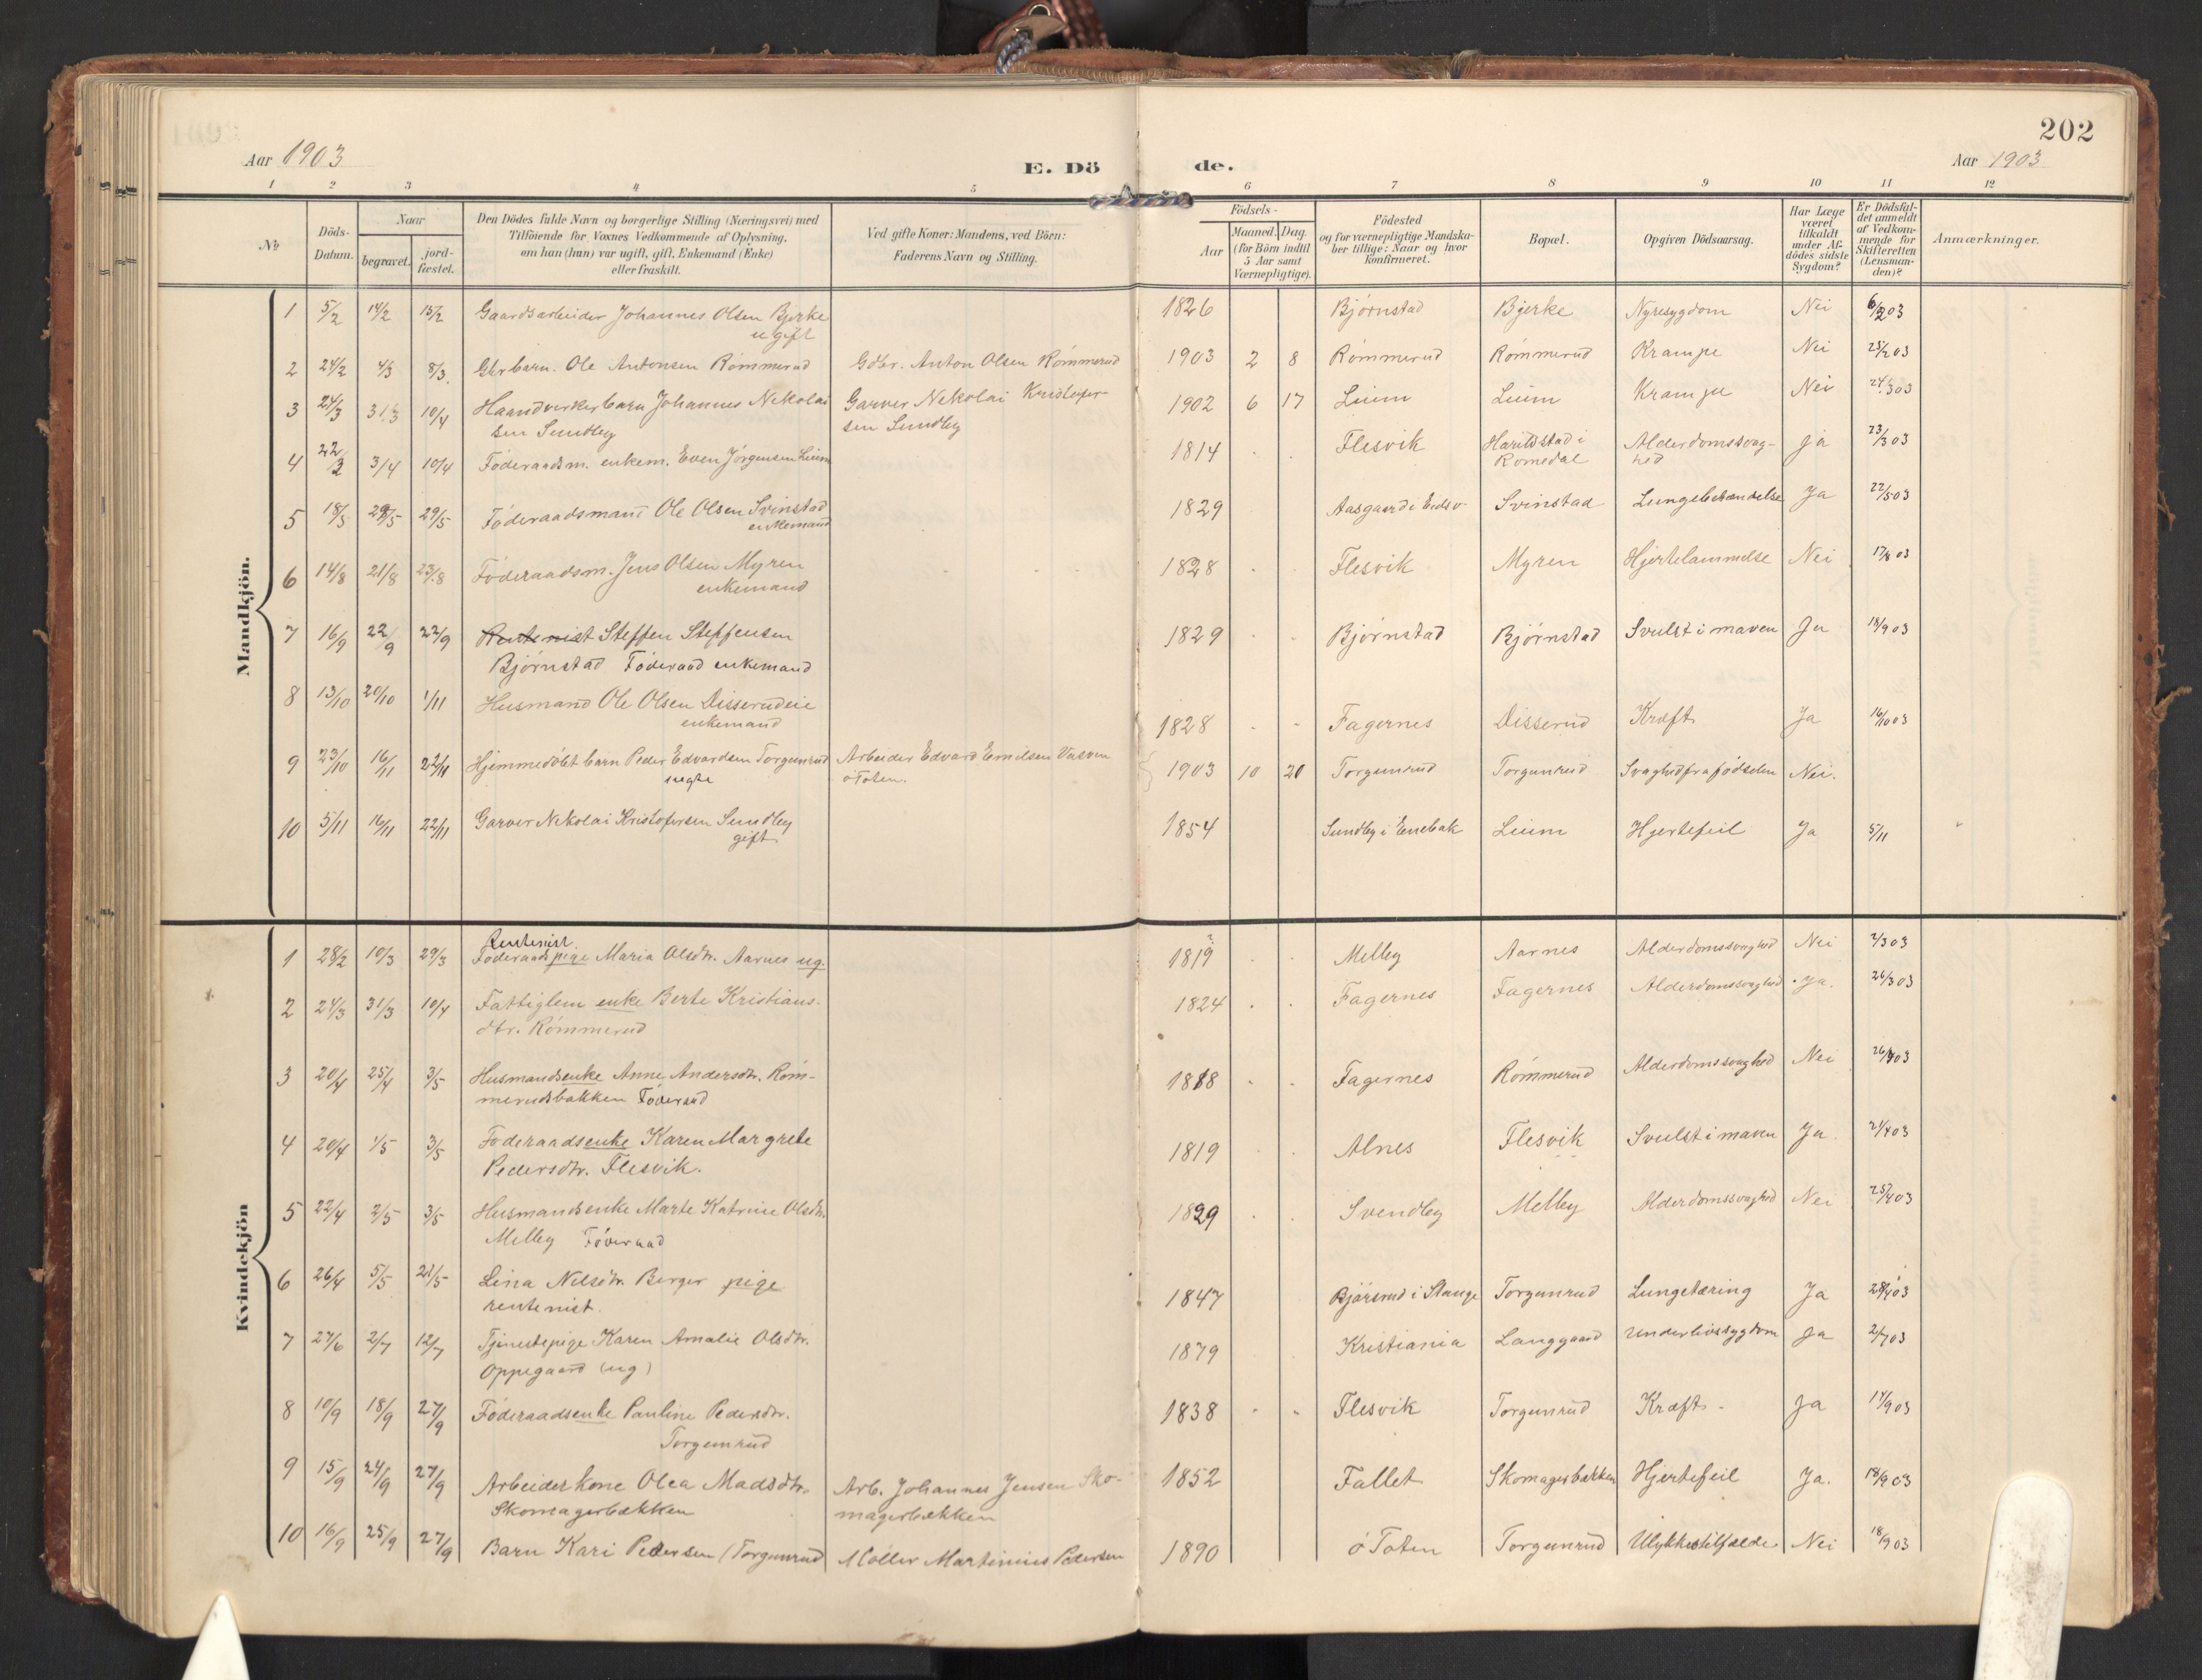 202
Aar 1903
E. Dö
de.
Aar 1903
1 2 3 4 5 6 7 8 9 10 11 12
No
Döds-Datum.
Naar
begravet.
jord-fæstet.
Den Dödes fulde Navn og borgerlige Stilling (Næringsvei) med
Tilföiende for Voxnes Vedkommende af Oplysning,
om han (hun) var ugift, gift, Enkemand (Enke)
eller fraskilt.
Ved gifte Koner: Mandens, ved Börn:
Faderens Navn og Stilling.
Födsels-
Aar
Maaned. Dag.
(for Börn indtil
5 Aar samt
Værnepligtige).
Födested
og for værnepligtige Mandska-
ber tillige: Naar og hvor
konfirmeret.
Bopæl.
Opgiven Dödsaarsag.
Har Læge
været
tilkaldt
under Af-
dödes sidste
Sygdom?
Er Dödsfal-
det anmeldt
af Vedkom-
mende for
Skifteretten
(Lensman-
den)?
Anmærkninger.
Mandkjön.
1 5/2 14/2 15/2 Gaardsarbeider Johannes Olsen Bjerke 1826 Bjørnstad Bjerke Nyresygdom Nei 6/2 03
ugift
2 24/2 4/3 8/3. Gbr barn. Ole Antonsen Rømmerud Gdbr. Anton Olsen Rømmerud 1903 2 8 Rømmerud Rømmerud Krampe Nei 25/2 03
3 24/3 31/3 10/4 Haandverkerbarn Johannes Nekolai Garver Nekolai Kristofer- 1902 6 17 Lium Lium Krampe Nei 24/3 03
sen Sundby sen Sundby
4 22/3 3/4 10/4 Føderaadsm. enkem. Even Jørgensen Lium 1814 Flesvik Harildstad i Alderdomssvag- ja 23/3 03
Romedal hed
5 18/5 29/5 29/5 Føderaadsmand Ole Olsen Svinstad 1829 Aasgaard i Eidsv. Svinstad Lungebetændelse Ja 22/5 03
enkemand
6 14/8 21/8 23/8 Føderaadsm. Jens Olsen Myren 1828 Flesvik Myren Hjertelammelse Nei 17/8 03
enkemand
7 16/9 22/9 22/9 Rentenist Steffen Steffensen 1829 Bjørnstad Bjørnstad Svulst i maven Ja 18/9 03
Bjørnstad Føderaad enkemand
8 13/10 20/10 1/11 Husmand Ole Olsen Disserudeie 1828 Fagernes Disserud Kræft Ja 16/10 03
enkemand
9 23/10 16/11 22/11 Hjemmedøbt barn Peder Edvardsen Torgunrud Arbeider Edvard Emilsen 1903 10 20 Torgunrud Torgunrud Svaghed fra fødselen Nei.
uegte ø Toten.
10 5/11 16/11 22/11 Garver Nekolai Kristofersen Sundby 1854 Sundby i Enebak Lium Hjertefeil Ja 5/11
gift
Kvindekjön
Rentenist.
1 28/2 10/3 29/3 Føderaadspige Maria Olsdtr. Aarnes ug. 1819 ? Melby Aarnes Alderdomssvaghed Nei 2/3 03
2 24/3 31/3 10/4 Fattiglem enke Berte Kristians- 1824 Fagernes Fagernes Alderdomssvaghed Ja. 26/3 03
dtr. Rømmerud
3 20/4 25/4 3/5 Husmandsenke Anne Andersdtr. Røm- 1818 Fagernes Rømmerud Alderdomssvaghed Nei 26/4 03
merudsbakken Føderaad
4 20/4 1/5 3/5 Føderaadsenke Karen Margrete 1819 Alnes Flesvik Svulst i maven Ja. 21/4 03
Pedersdtr. Flesvik.
5 22/4 2/5 3/5 Husmandsenke Marte Katrine Olsdtr. 1829 Svendby Melby Alderdomssvaghed Nei 25/4 03
Melby Føderaad
6 26/4 5/5 21/5 Lina Nelsdtr. Berger pige 1847 i Stange Torgunrud Lungetæring Ja 28/4 03
rentenist.
7 27/6 2/7 12/7 Tjenestepige Karen Amalie Olsdtr. 1879 Kristiania Langgaard Underlivssygdom ja 2/7 03
Oppegaard (ug)
8 10/9 18/9 27/9 Føderaadsenke Pauline Pedersdtr. 1838 Flesvik Torgunrud Kræft Ja 14/9 03
Torgunrud
9 15/9 24/9 27/9 Arbeiderkone Olea Madsdtr. Arb. Johannes Jensen Sko- 1852 Fallet Skomagerbækken Hjertefeil Ja. 18/9 03
Skomagerbækken magerbækken
10 16/9 25/9 27/9 Barn Kari Pedersen (Torgunrud Møller Martinius Pedersen 1890 ø Toten Torgunrud Ulykkestilfælde Nei 18/9 03